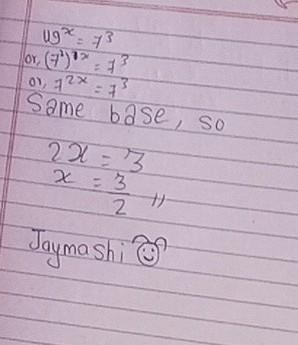 49ˣ = 7³
or, (7²)ˣ = 7³
or, 7²ˣ = 7³
Same base, so
2x = 3
x = 3/2 //
Jaymashi